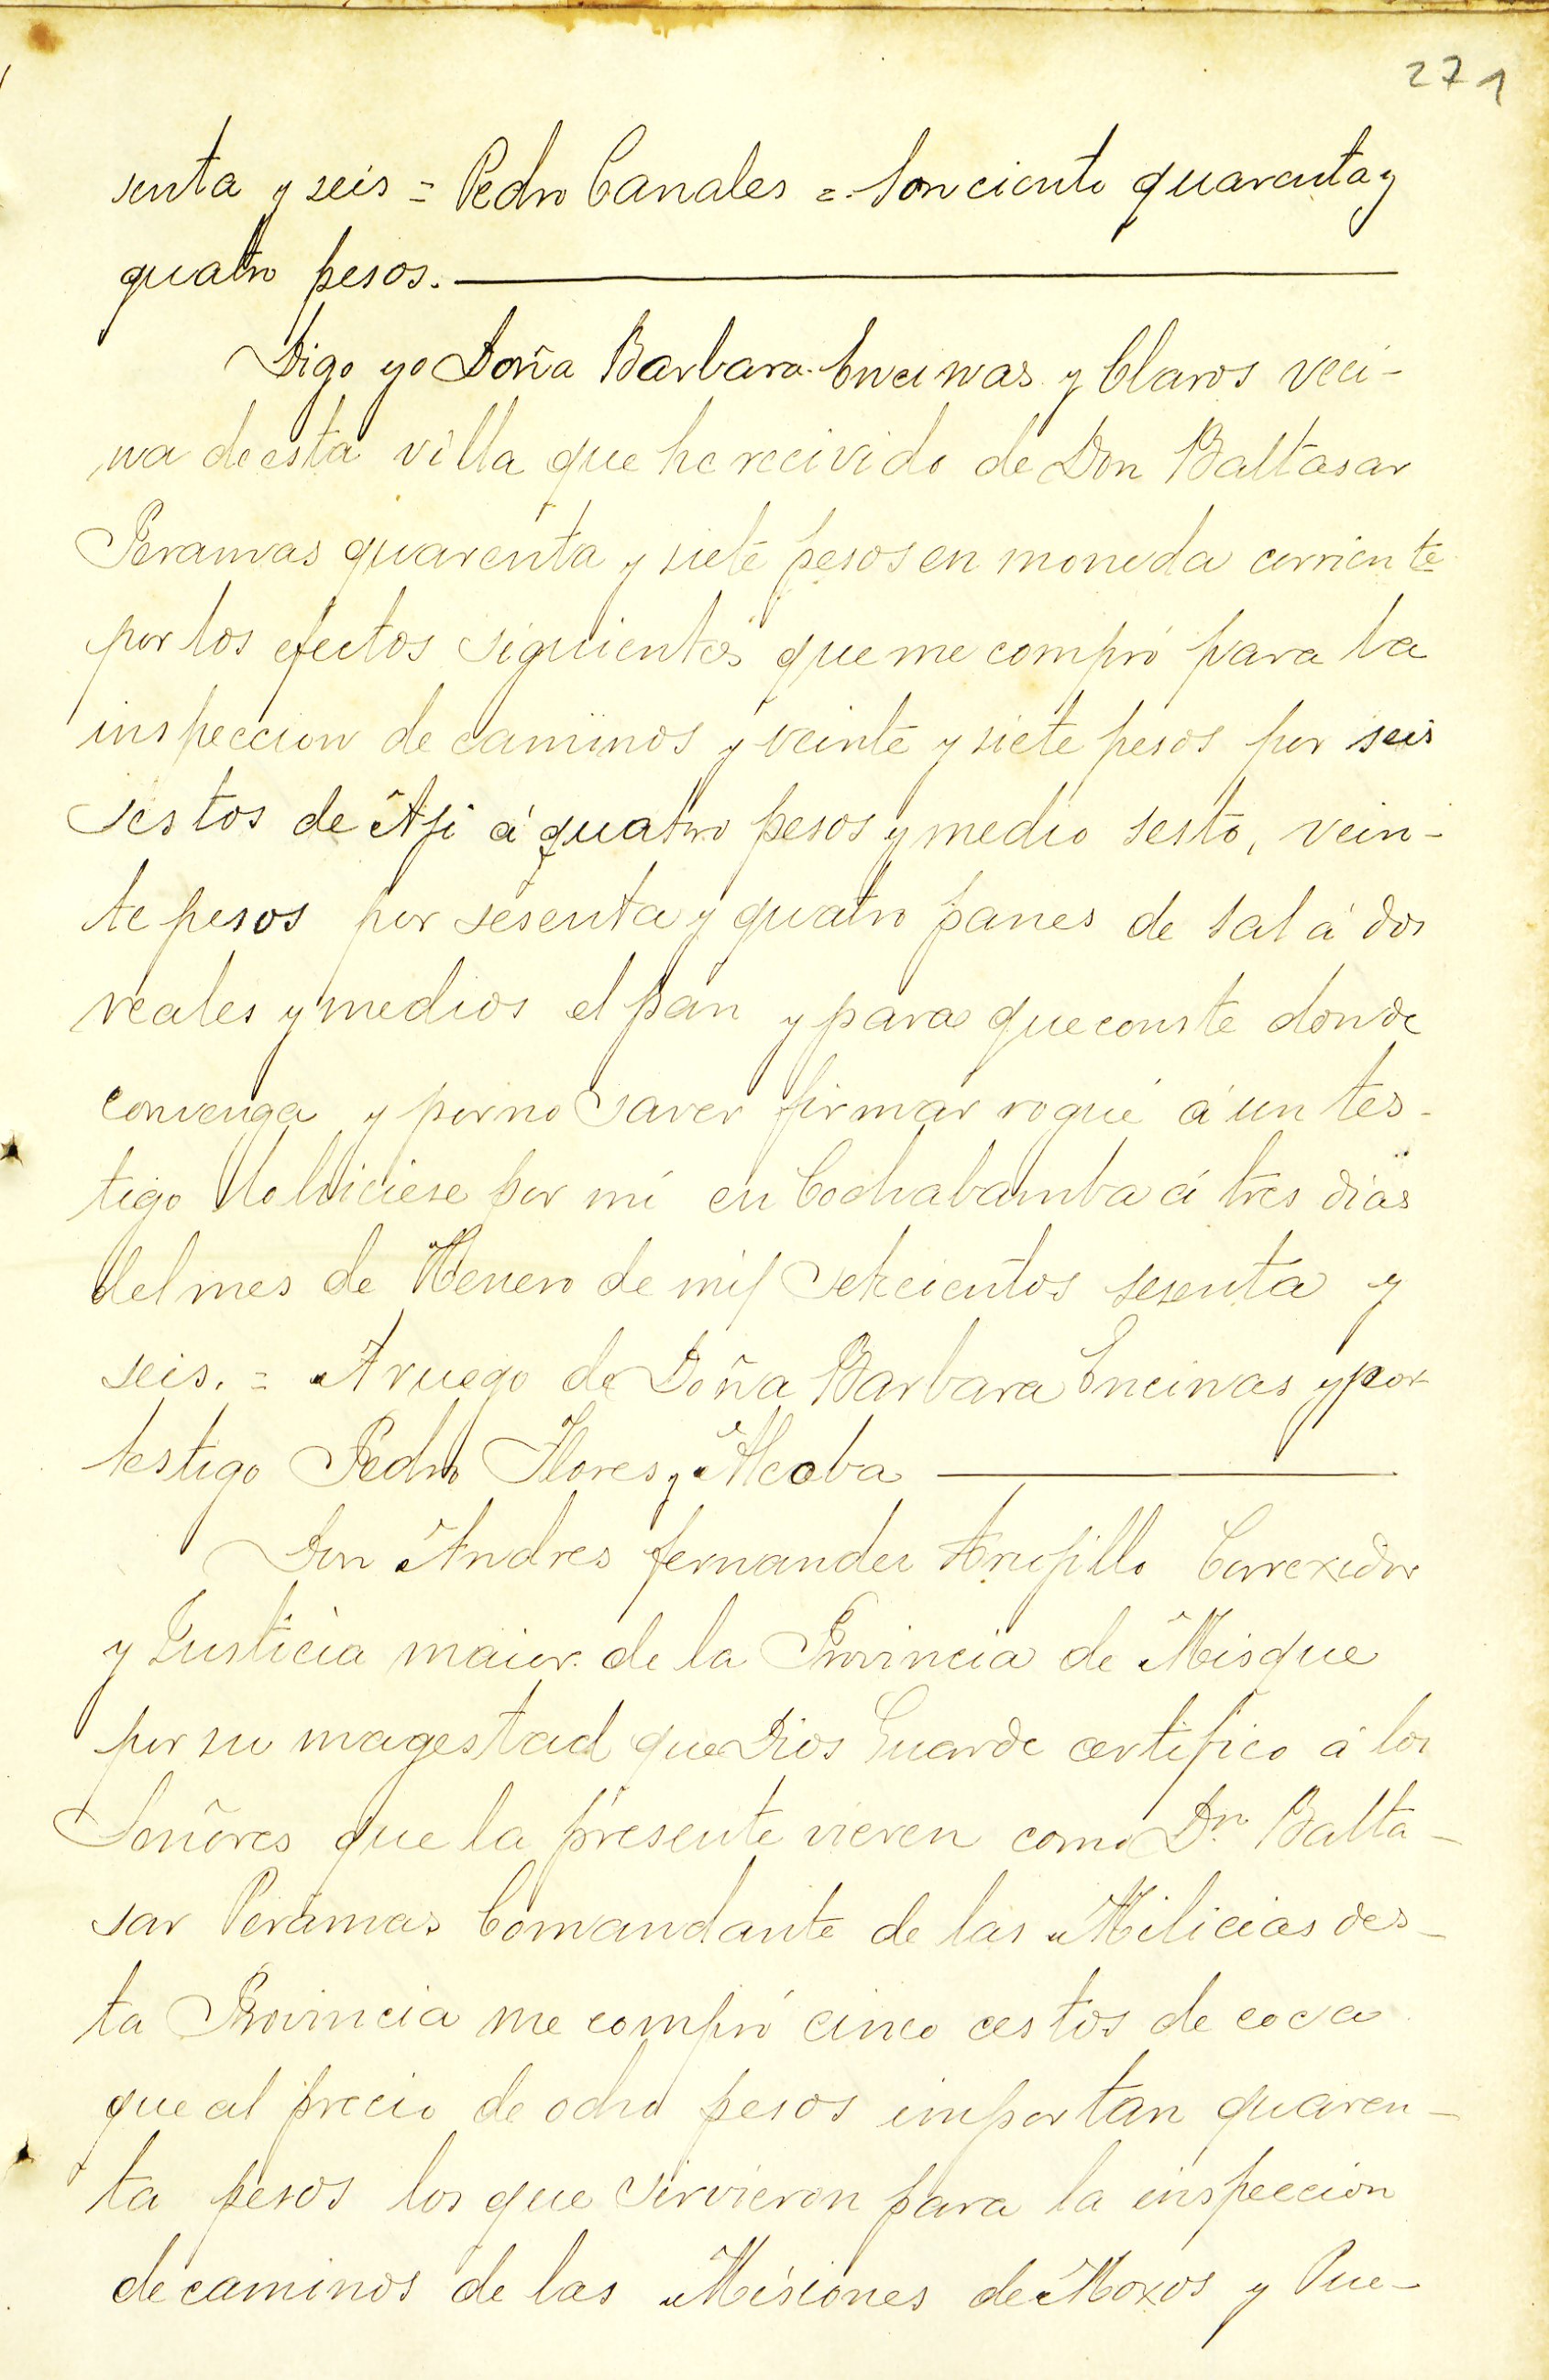 271
senta y seis = Pedro Canales = Son ciento quarenta y
quatro pesos.
Digo yo Doña Barbara Encinas y Claros veci-
na de esta villa que he recivido de Don Baltasar
Peramas quarenta y siete pesos en moneda corriente
por los efectos siguientes que me compró para la
inspeccion de caminos y veinte y siete pesos por seis
sestos de Aji á quatro pesos y medio sesto, vein-
te pesos por sesenta y quatro panes de sal á dos
reales y medios el pan y para que conste donde
convenga y por no saver firmar rogué á un tes-
tigo lo hiciese por mí en Cochabamba á tres dias
del mes de Henero de mil setecientos sesenta y
seis. = A ruego de Doña Barbara Encinas y por
testigo Pedro Flores y Alcoba
Don Andres fernandez Trujillo Correxidor
y Justicia maior de la Provincia de Misque
por su magestad que Dios Guarde certifico á los
Señores que la presente vieren como Dn. Balta-
sar Peramas Comandante de las Milicias des-
ta Provincia me compró cinco cestos de coca
que al precio de ocho pesos importan quaren-
ta pesos los que sirvieron para la inspeccion
de caminos de las Misiones de Moxos y Pue-